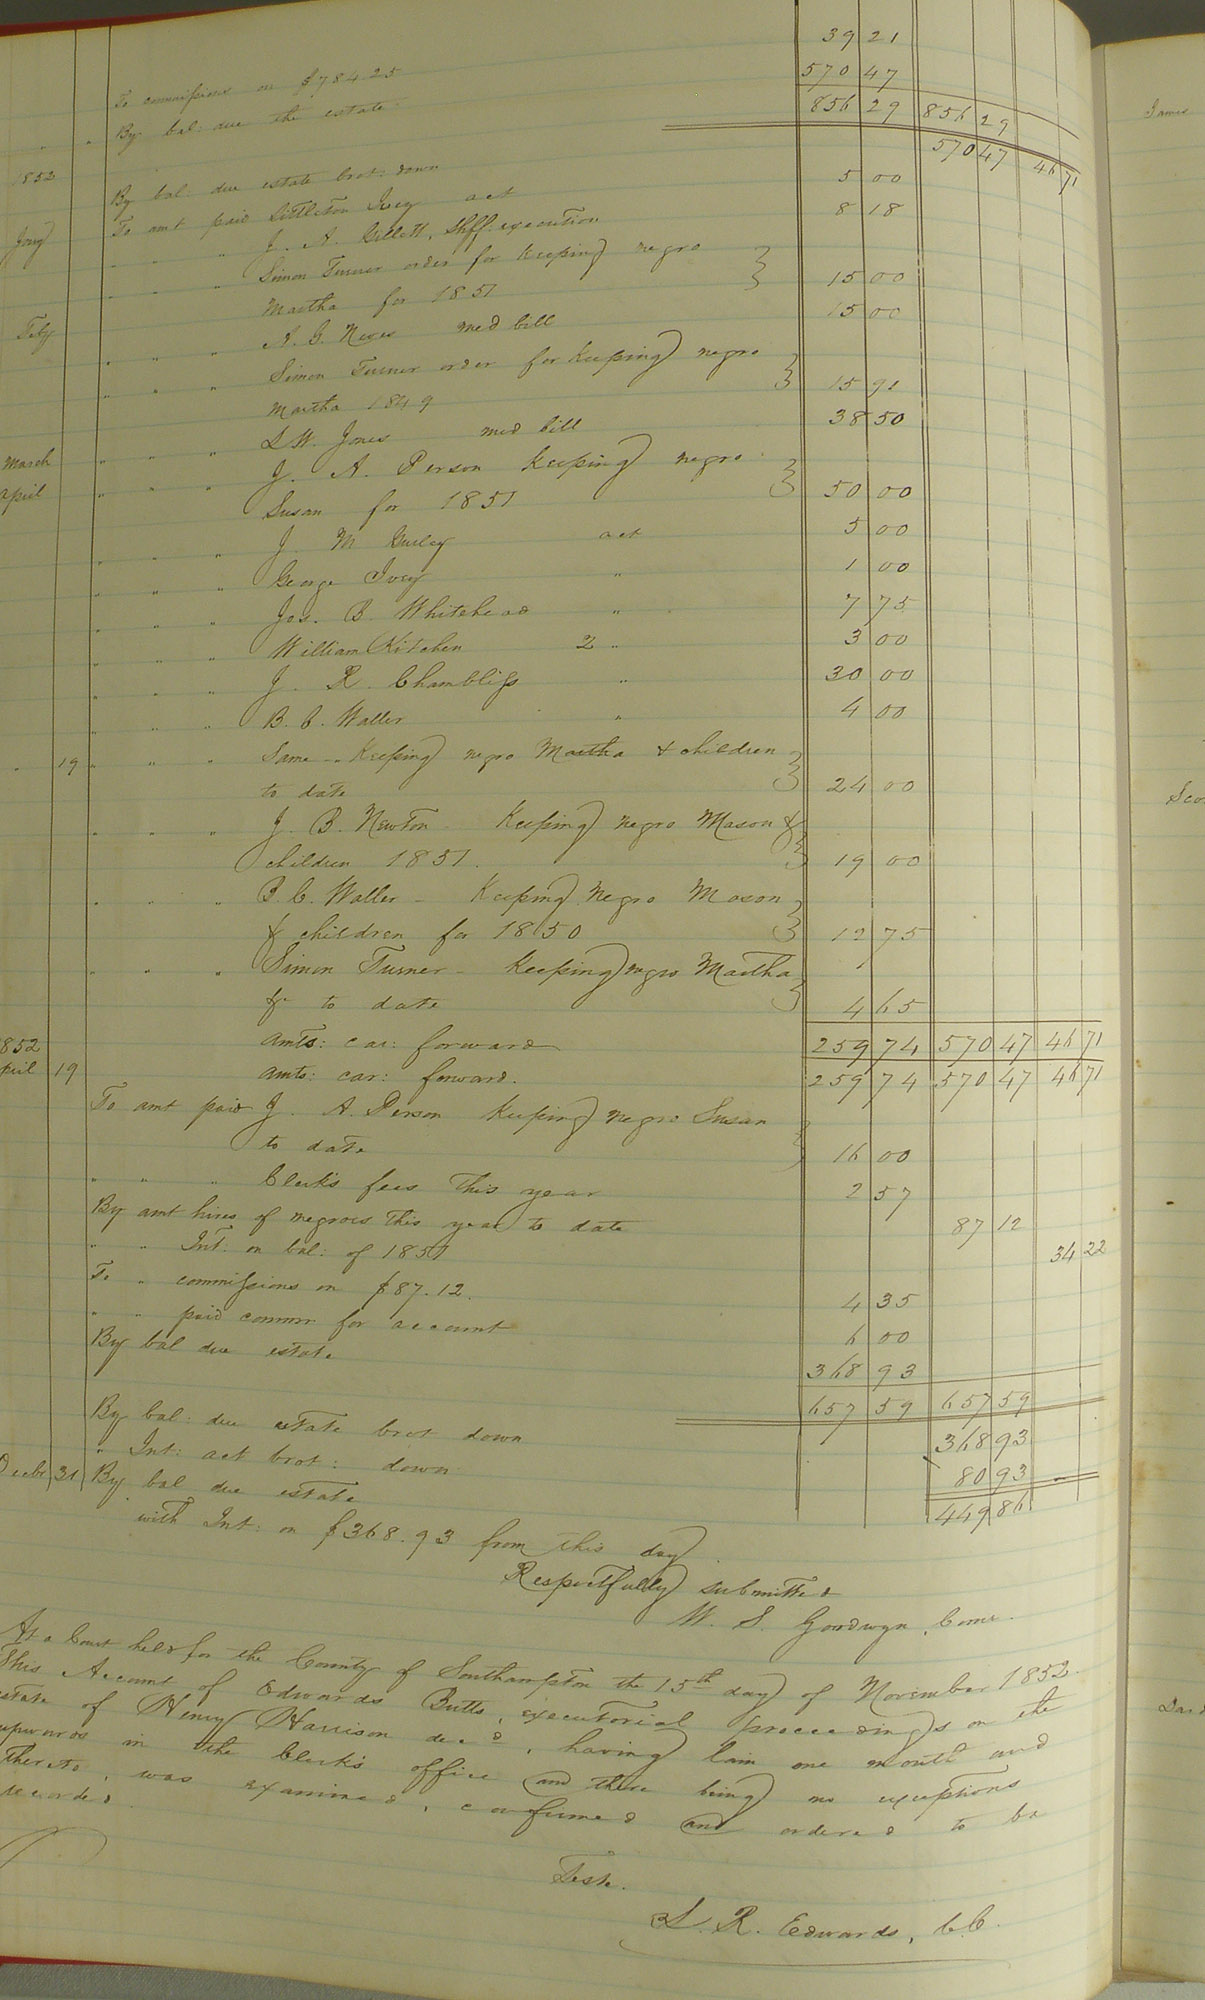 To commissions on $784.25 39 21
By bal: due the estate. 570 47
856 29 856 29
1852 By bal: due estate brot: down 570 47 46 71
Jany To amt paid Littleton Ivey act 5 00
" " " J. A. Gillett, Shff. execution 8 18
" " " Simon Turner order for Keeping negro
Martha for 1851 15 00
Feby " " " med bill 15 00
" " " Simon Turner order for Keeping negro
Martha 1849 15 91
March " " " L W. Jones med bill 38 50
april " " " J. A. Person Keeping negro
Susan for 1851 50 00
" " " J. M Gurley act 5 00
" " " George Ivey " 1 00
" " " Jos. B. Whitehead " 7 75
" " " William Kitchen 2 " 3 00
" " " J. R. Chambliss " 30 00
" " " B. C. Waller " 4 00
" 19 " " " Same - Keeping negro Martha & children
to date 24 00
" " " J. B. Newton - Keeping negro Mason &
children 1851. 19 00
" " " B. C. Waller - Keeping Negro Mason
& children for 1850 12 75
" " " Simon Turner - Keeping negro Martha
& to date 4 65
amts: car: forward 259 74 570 47 46 71
1852 april 19 amts: car: forward. 259 74 570 47 46 71
To amt paid J. A. Person Keeping negro Susan
to date 16 00
" " " Clerks fees this year 2 57
By amt hires of negroes this year to date 87 12
" " Int: on bal: of 1851 34 22
To " commissions on $87.12. 4 35
" " paid commr for account 6 00
By bal due estate 368 93
657 59 657 59
By bal: due estate brot down 368 93
" Int: act brot: down 80 93
Decbr 31 By bal due estate 449 86
with Int: on $368.93 from this day.
Respectfully submitted
W. S. Goodwyn, Comr.
At a Court held for the County of Southampton the 15th day of November 1852.
This Account of Edwards Butts, executorial proceedings on the
estate of Henry Harrison decd, having lain one month and
upwards in the Clerks office and there being no exceptions
thereto, was examined, confirmed and ordered to be
recorded.
Teste.
L. R. Edwards, C.C.
James